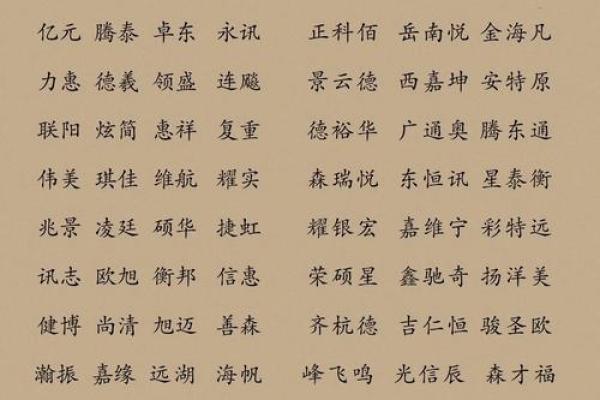 亿元 腾泰 卓东 永讯 正科佰 岳南悦 金海凡
力惠 德羲 领盛 连飚 景云德 西嘉坤 安特原
联阳 炫简 惠祥 复重 德裕华 广通奥 腾东通
伟美 琪佳 维航 耀实 森瑞悦 东恒讯 星泰衡
兆景 凌廷 硕华 捷虹 耀银宏 嘉维宁 彩特远
讯志 欧旭 衡邦 信惠 荣硕星 鑫驰奇 扬洋美
健博 尚清 旭迈 善森 齐杭德 吉仁恒 骏圣欧
瀚振 嘉缘 远湖 海帆 峰飞鸣 光信辰 森才福